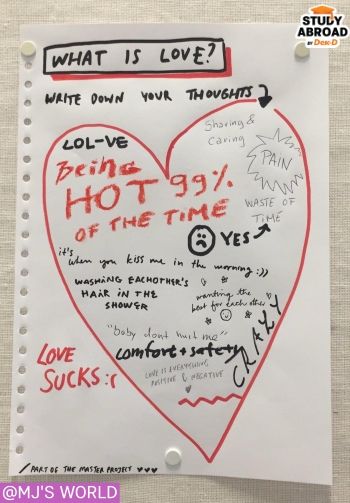 STUDY
ABROAD
BY Dek-D
WHAT IS LOVE?
WRITE DOWN YOUR THOUGHTS
Sharing &
Caring
LOL-VE
Being
HOT 99%
OF THE TIME
PAIN
WASTE OF
TIME
YES
it's
when you kiss me in the morning :))
WASHING EACHOTHER'S
HAIR IN THE
SHOWER
wanting the
best for each other
"baby dont hurt me"
comfort + safety
CRAZY
LOVE IS EVERYTHING
POSITIVE & NEGATIVE
LOVE
SUCKS :(
/ PART OF THE MASTER PROJECT ♥♥♥
@MJ'S WORLD